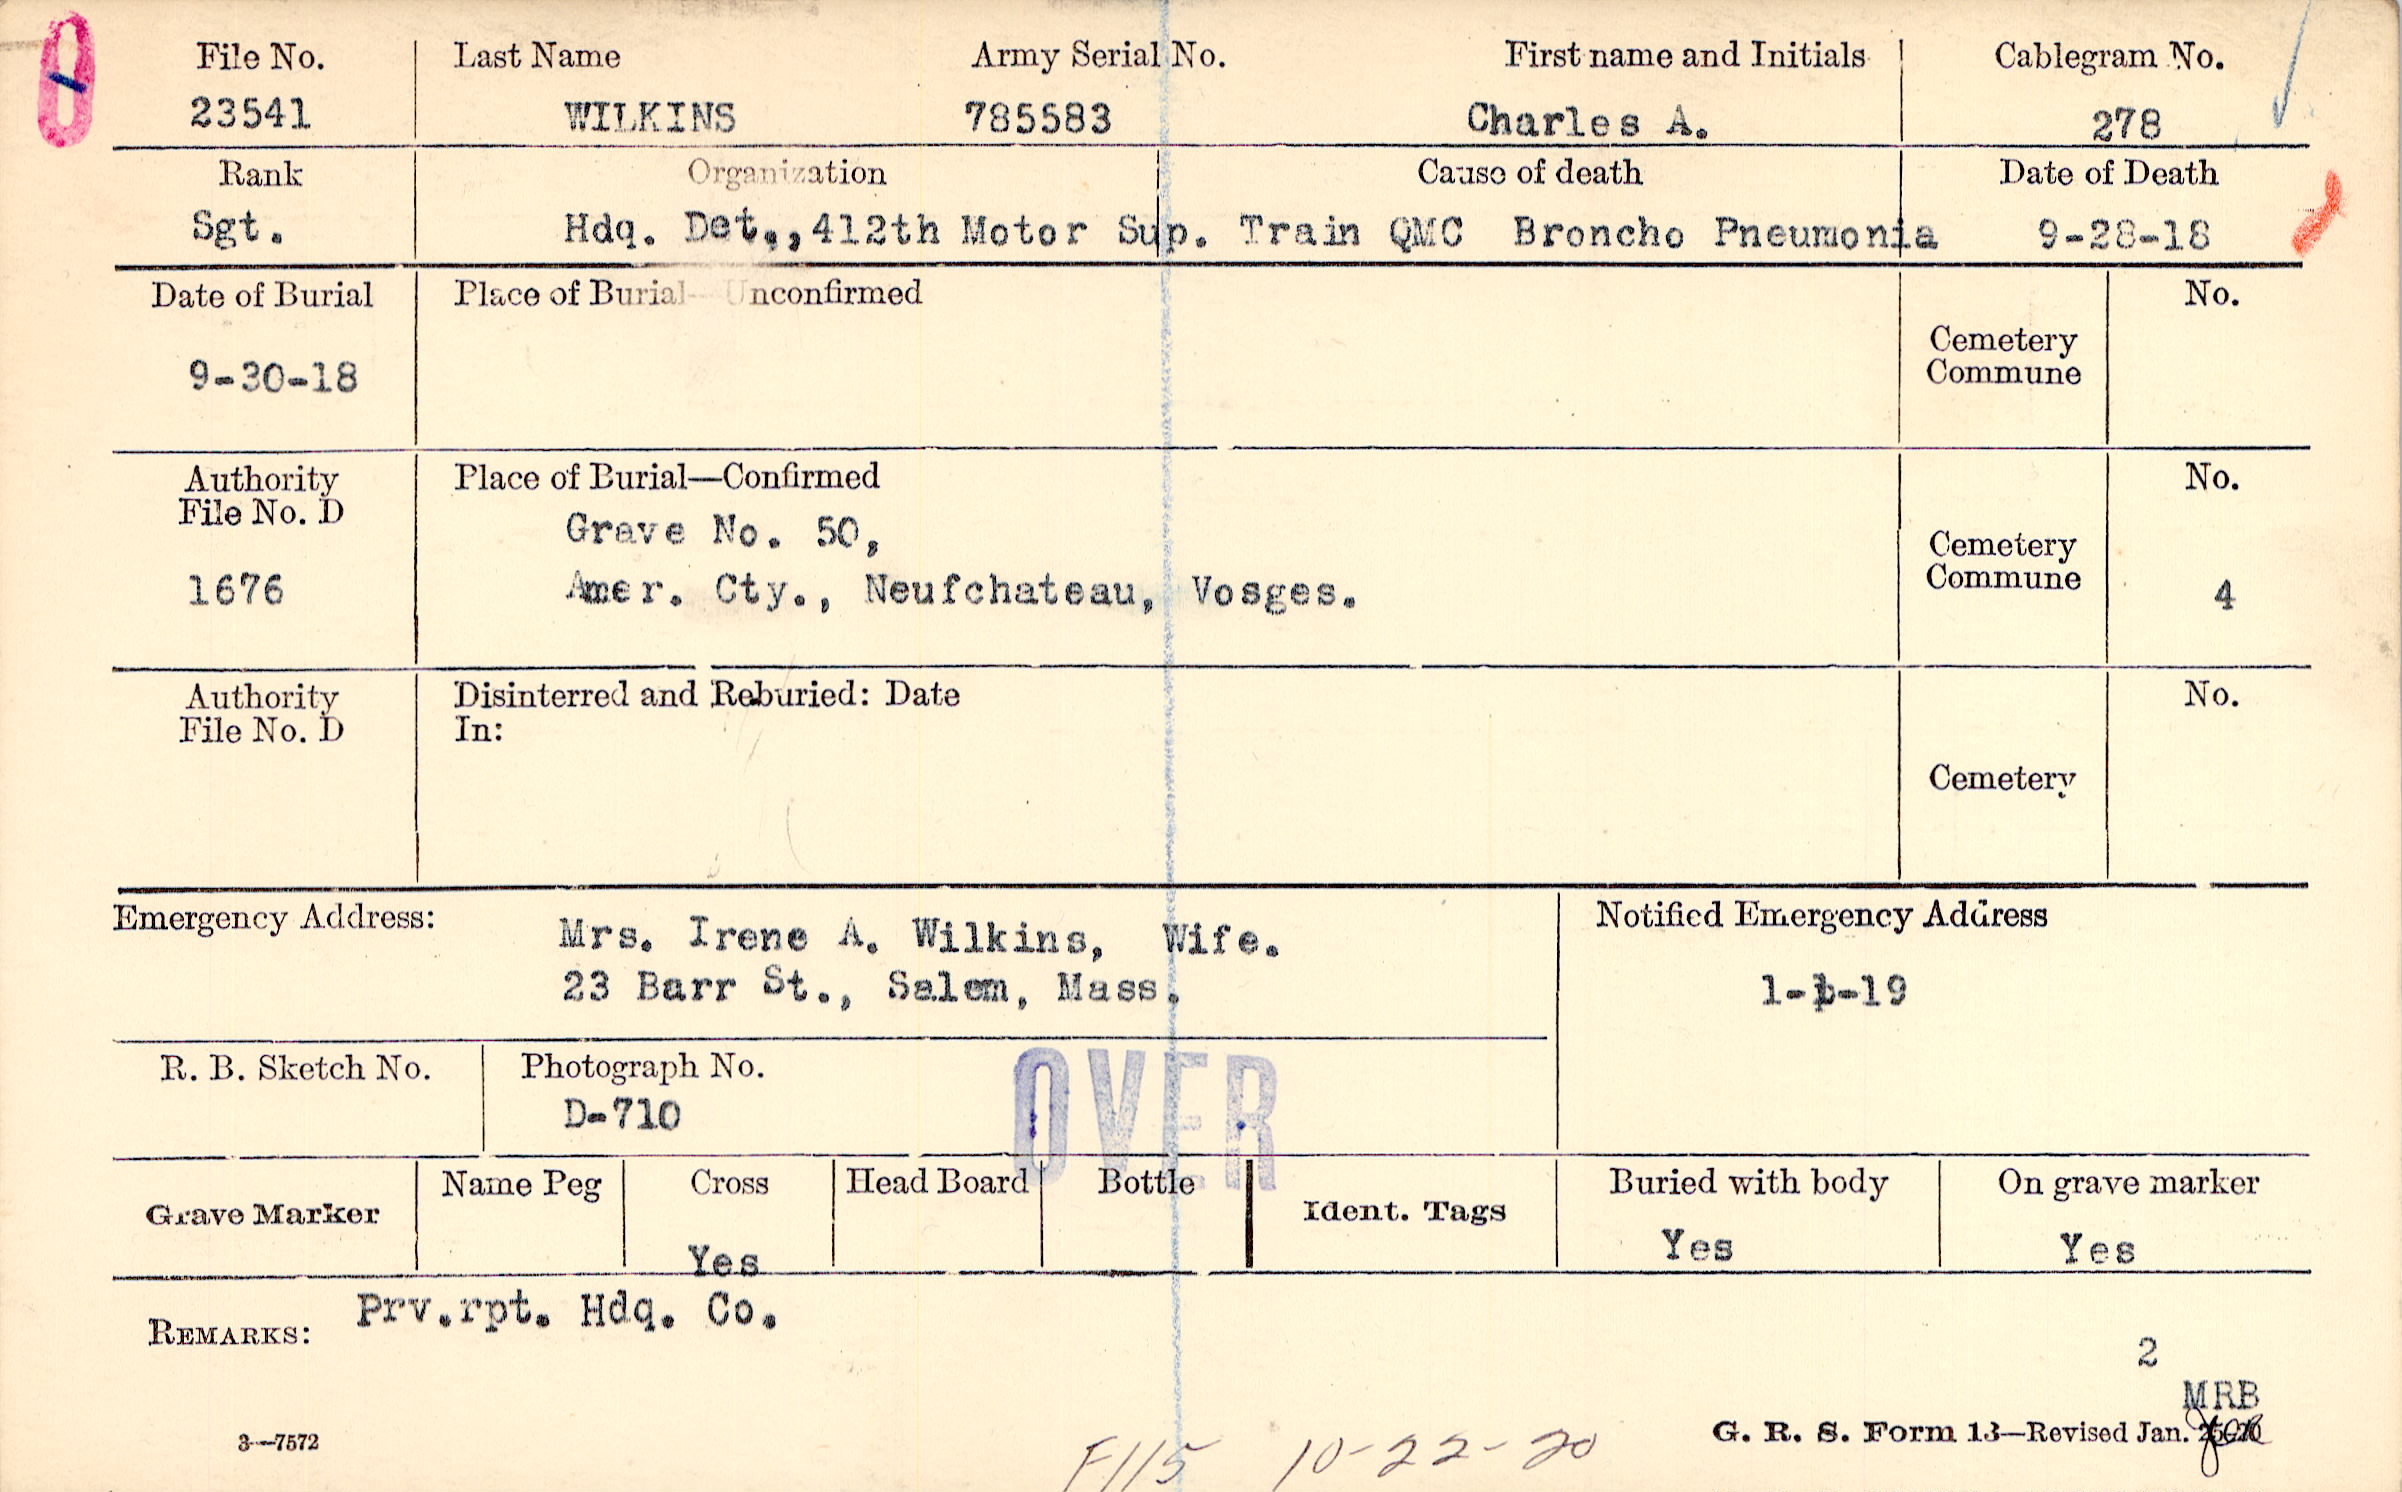 File No. Last Name Army Serial No. First name and Initials Cablegram No.
23541 WILKINS 785583 Charles A. 278
Rank Organization Cause of death Date of Death
Sgt. Hdq. Det.,,412th Motor Sup. Train QMC Broncho Pneumonia 9-28-18
Date of Burial Place of Burial—Unconfirmed No.
Cemetery
Commune
9-30-18
Authority Place of Burial—Confirmed No.
File No. D
Grave No. 50,
Cemetery
Commune
1676 Amer. Cty., Neufchateau, Vosges. 4
Authority Disinterred and Reburied: Date No.
File No. D In:
Cemetery
Emergency Address: Mrs. Irene A. Wilkins, Wife. Notified Emergency Address
23 Barr St., Salem, Mass. 1- -19
R. B. Sketch No. Photograph No.
D-710
OVER
Grave Marker Name Peg Cross Head Board Bottle Ident. Tags Buried with body On grave marker
Yes Yes Yes
REMARKS: Prv.rpt. Hdq. Co.
2
MRB
3—7572 G. R. S. Form 13—Revised Jan.
F115 10-22-20